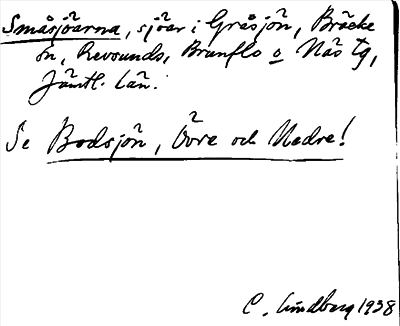 Småsjöarna, sjöar i Gråsjön, Bräcke
sn, Revsunds, Brunflo o Näs tg,
Jämtl. län.
Se Bodsjön, Övre och Nedre!
C. Lindberg 1938